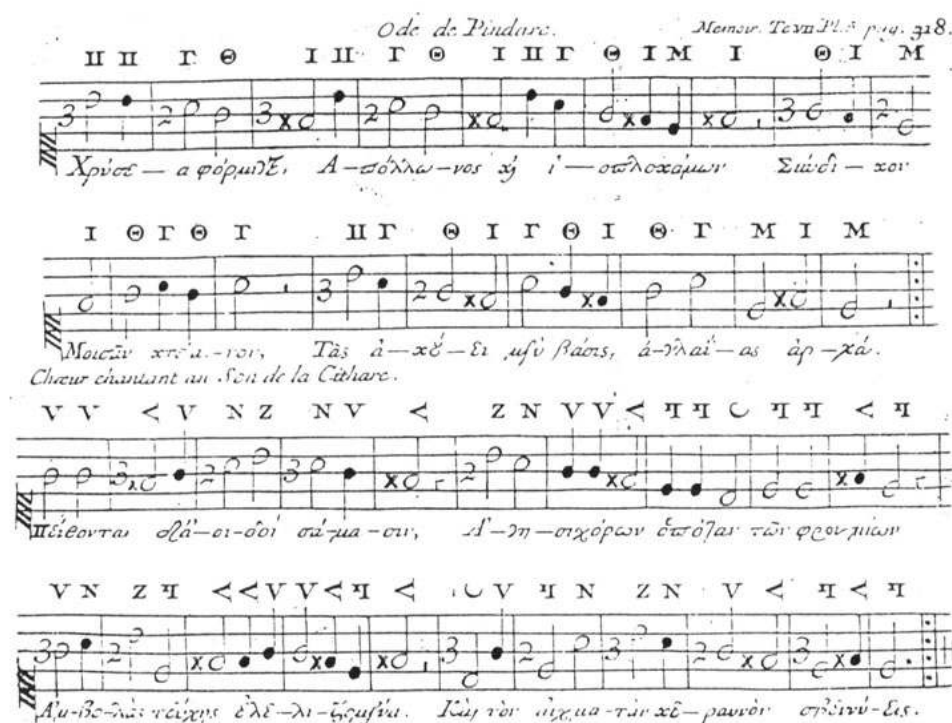 Ode de Pindare. Memoir. To VII Pl. pag. 318.
Π Π Γ Θ Ι Π Γ Θ Ι Π Γ Θ Ι Μ Ι Θ Ι Μ
3 2 3 2 2 3 2
Χρύσε — α φόρμιγξ, Α — πόλλω — νος ϗ ἰ — οπλοκάμων Σύνδι — κον
Ι Θ Γ Θ Γ Π Γ Θ Ι Γ Θ Ι Θ Γ Μ Ι Μ
3 2
Μοισᾶν κτέα — νον, Τᾶς ἀ — κού — ει μὲν βάσις, ἀ — γλαΐ — ας ἀρ — χά.
Chœur chantant au Son de la Cithare.
V V < V N Z N V < Z N V V < ꟼ ꟼ C ꟼ ꟼ < ꟼ
3 2 3 2
Πείθονται δ' ἀ — οι — δοὶ σά — μα — σιν, Ἁ — γη — σιχόρων ὁπόταν τῶν φροιμίων
V N Z ꟼ < < V V < ꟼ < C V ꟼ N Z N V < ꟼ < ꟼ
3 2 3 2 3 2 3
Ἀμ — βο — λὰς τεύχῃς ἐλε — λι — ζομένα. Καὶ τὸν αἰχμα — τὰν κε — ραυνὸν σβεννύ — εις.